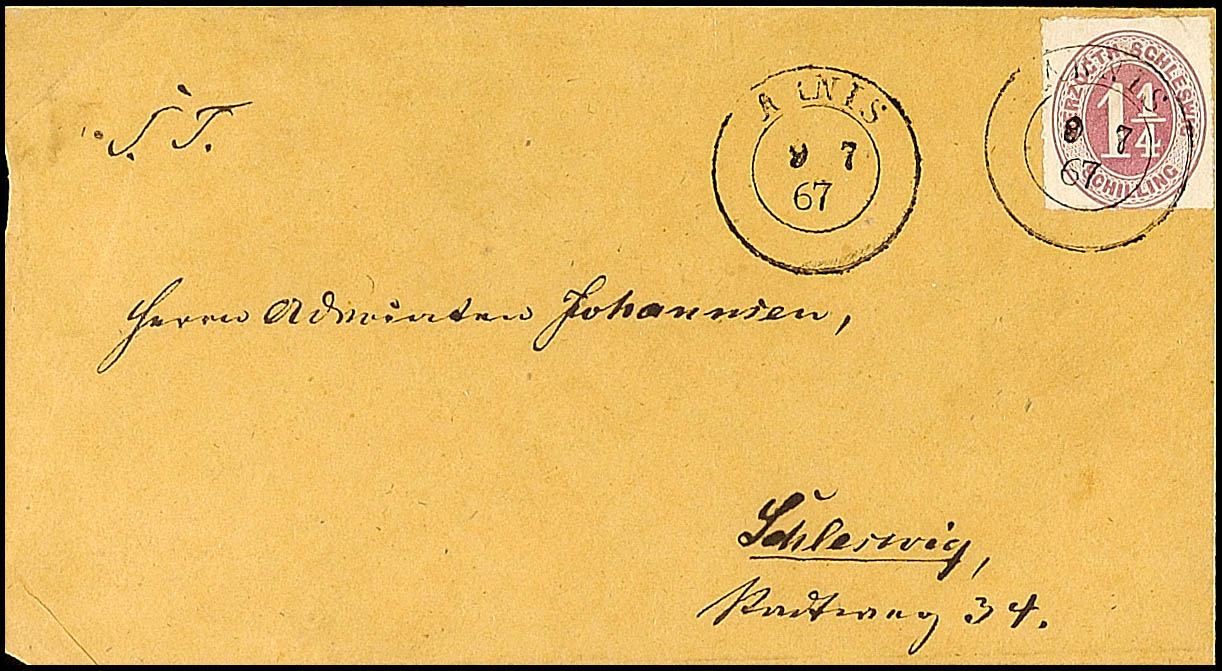 S. T.
A NIS
9 7
67
HERZOGTH. SCHLESWIG
1 1/4
SCHILLING
NIS
9 7
67
Herrn Advocaten Johannsen,
Schleswig,
Stadtweg 34.